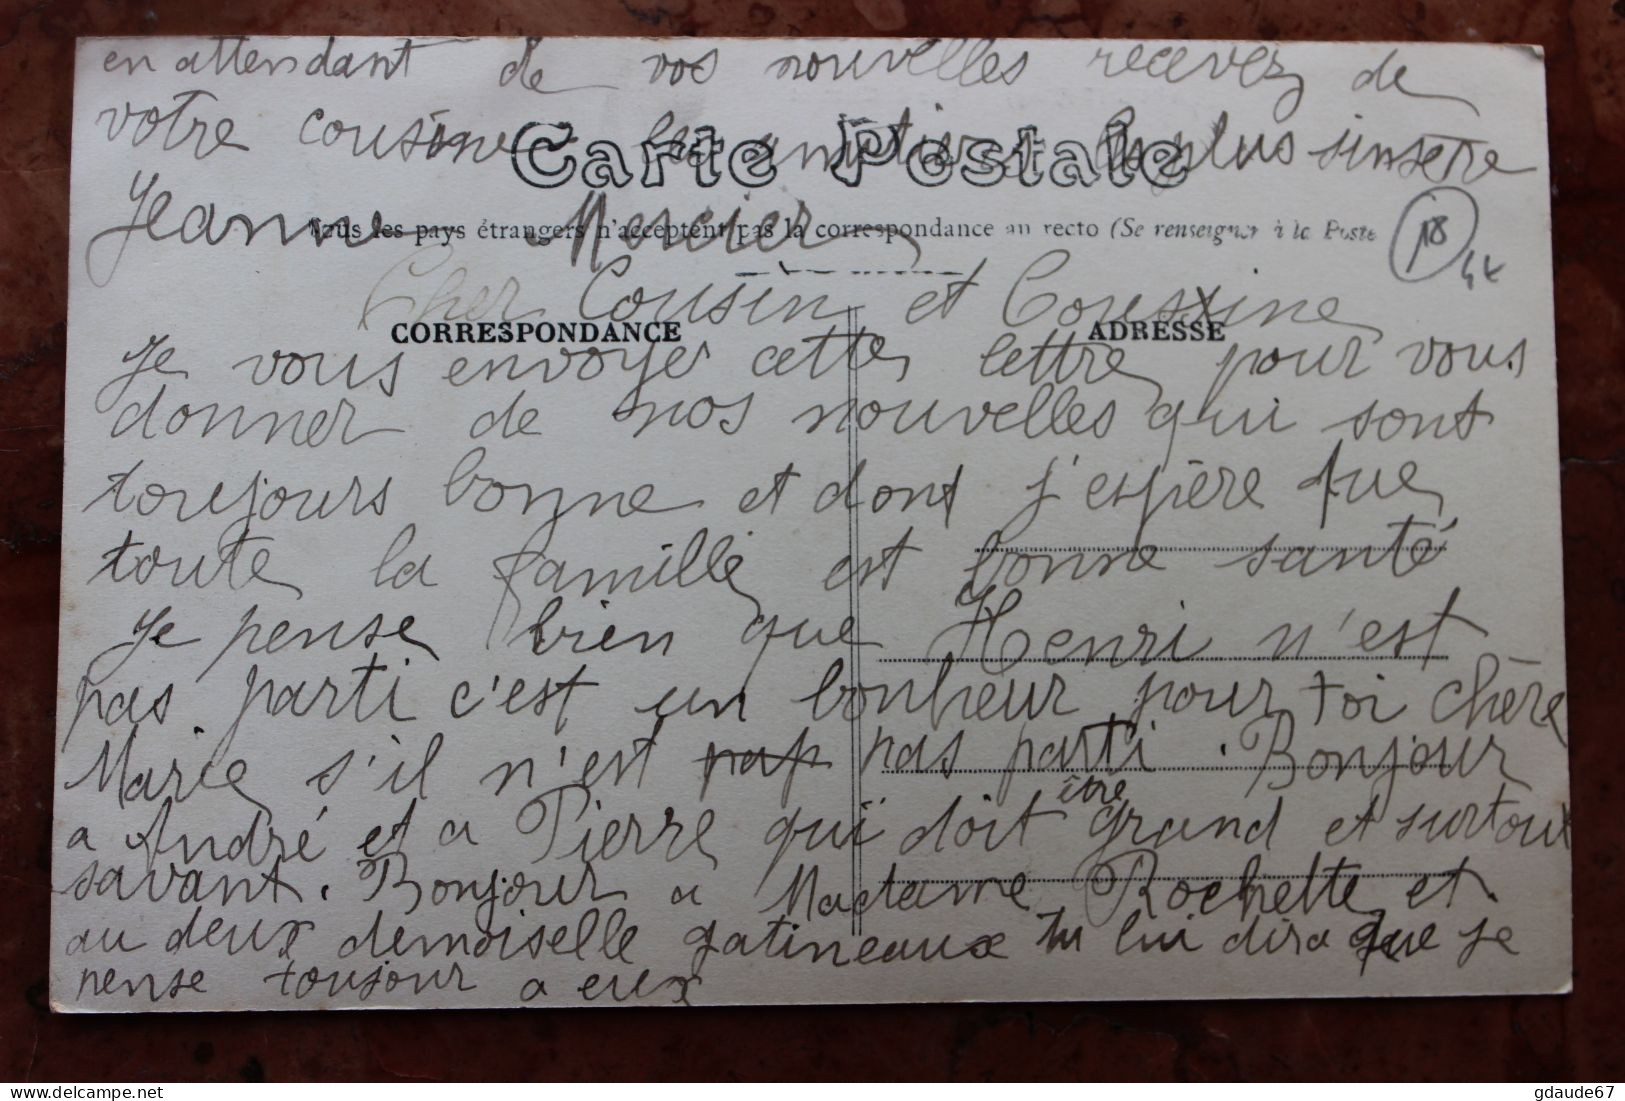 en attendant de vos nouvelles recevez de
votre cousine les amitiés les plus sinsère
Carte Postale
Jeanne Mercier
Tous les pays étrangers n'acceptent pas la correspondance au recto (Se renseigner à la Poste
18
Cher Cousin et Cousine
CORRESPONDANCE ADRESSE
Je vous envoye cette lettre pour vous
donner de nos nouvelles qui sont
toujours bonne et dont j'espère que
toute la famille est bonne santé
Je pense bien que Henri n'est
pas parti c'est un bonheur pour toi chère
Marie s'il n'est pas pas parti. Bonjour
a André et a Pierre qui doit être grand et surtout
savant. Bonjour a Madame Rochette et
au deux demoiselle gatineaux tu lui dira que je
pense toujour a eux
gdaude67